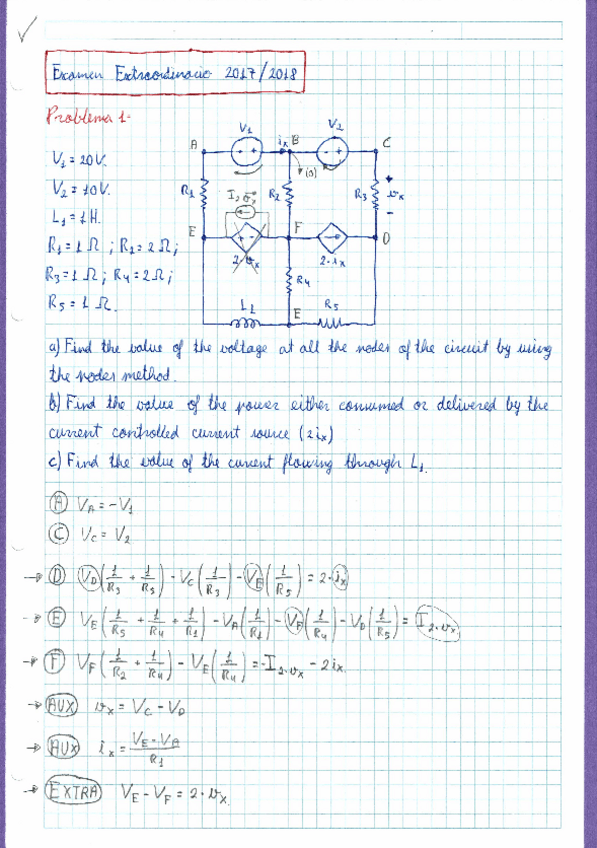 Examen Extraordinario 2017/2018
Problema 1-
V₁ = 20 V.
V₂ = 10 V.
L₁ = 1 H.
R₁ = 1 Ω ; R₂ = 2 Ω ;
R₃ = 1 Ω ; R₄ = 2 Ω ;
R₅ = 1 Ω.
A V₁ iₓ B V₂ C
(0)
R₁ I₂.ᵥₓ R₂ R₃ + vₓ -
E F D
2·vₓ 2·iₓ
R₄
L₁ E R₅
a) Find the value of the voltage at all the nodes of the circuit by using
the nodes method.
b) Find the value of the power either consumed or delivered by the
current controlled current source (2iₓ)
c) Find the value of the current flowing through L₁.
A V_A = -V₁
C V_C = V₂
D V_D (1/R₃ + 1/R₅) - V_C (1/R₃) - V_E (1/R₅) = 2·iₓ
E V_E (1/R₅ + 1/R₄ + 1/R₁) - V_A (1/R₁) - V_F (1/R₄) - V_D (1/R₅) = I₂.ᵥₓ
F V_F (1/R₂ + 1/R₄) - V_E (1/R₄) = -I₂.ᵥₓ - 2iₓ
AUX vₓ = V_C - V_D
AUX iₓ = (V_E - V_A)/R₁
EXTRA V_E - V_F = 2·vₓ.